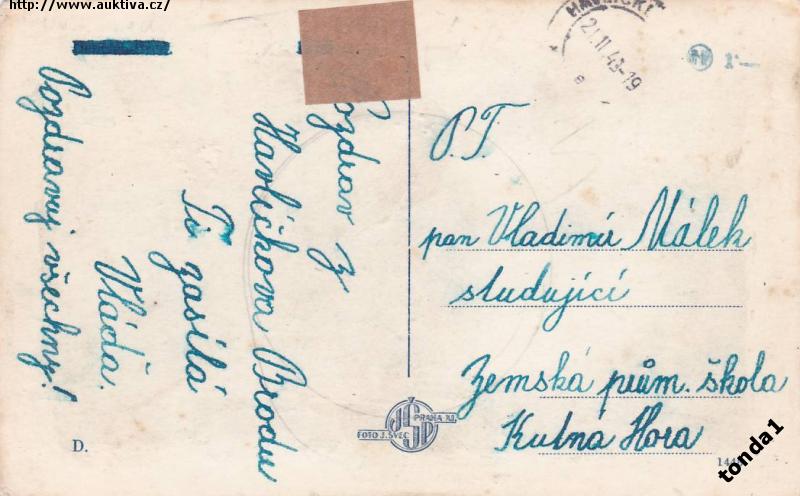 http://www.auktiva.cz/
Pozdrav z
Havlíčkova Brodu
Ti zasílá
Vláďa.
Pozdravuj všechny!
21.II.43-19
P.T.
pan Vladimír Málek
studující
Zemská prům. škola
Kutná Hora
FOTO J. ŠVEC
PRAHA XI.
D.
tonda1